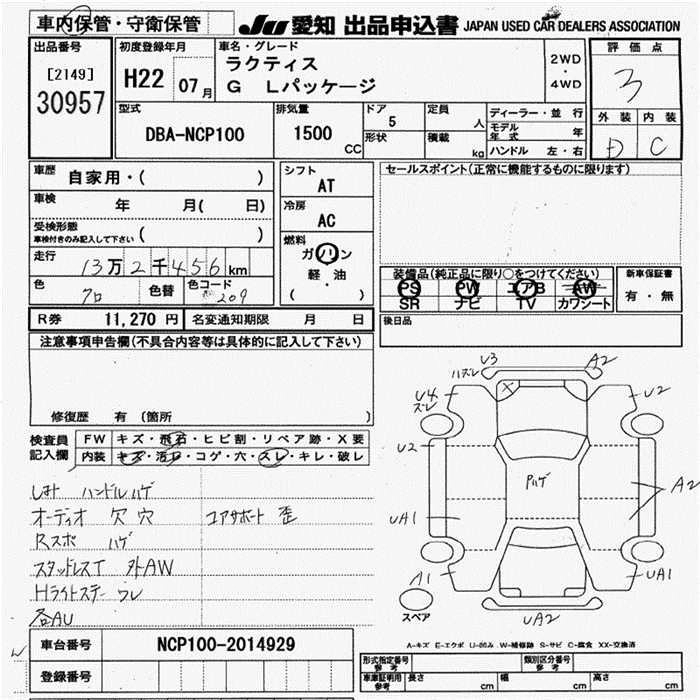 車内保管・守衛保管
JU 愛知 出品申込書 JAPAN USED CAR DEALERS ASSOCIATION
出品番号
[2149]
30957
初度登録年月
H22 07月
車名・グレード
ラクティス
G Lパッケージ
2WD
・
4WD
評価点
3
外装 内装
D C
型式
DBA-NCP100
排気量
1500 CC
ドア
5
形状
定員 人
積載 kg
ディーラー・並行
モデル年式 年
ハンドル 左・右
車歴 自家用・( )
車検 年 月( 日)
受検形態
車検付きのみ記入して下さい ( )
走行 13万2千456km
色 クロ 色替 色コード 209
シフト
AT
冷房
AC
燃料
ガソリン
軽・油
( )
セールスポイント(正常に機能するものに限ります)
装備品(純正品に限り○をつけてください)
PS PW エアB AW
SR ナビ TV カワシート
新車保証書
有・無
R券 11,270円 名変通知期限 月 日
後日品
注意事項申告欄(不具合内容等は具体的に記入して下さい)
修復歴 有 (箇所 )
検査員記入欄
FW キズ・飛石・ヒビ割・リペア跡・X要
内装 キズ・汚レ・コゲ・穴・スレ・キレ・破レ
ハンドルハゲ
オーディオ欠穴 コアサポート歪
Rスポ ハゲ
スタッドレスT 外AW
Hライトステー ワレ
各AU
U3
ハズレ
A2
U4
ズレ
U2
U2
Pハゲ
A2
UA1
A1
UA1
UA2
スペア
A-キズ E-エクボ U-凹み W-補修跡 S-サビ C-腐食 XX-交換済
車台番号 NCP100-2014929
登録番号
形式指定番号 参考
類別区分番号 参考
車庫証明用 参考 長さ cm 幅 cm 高さ cm